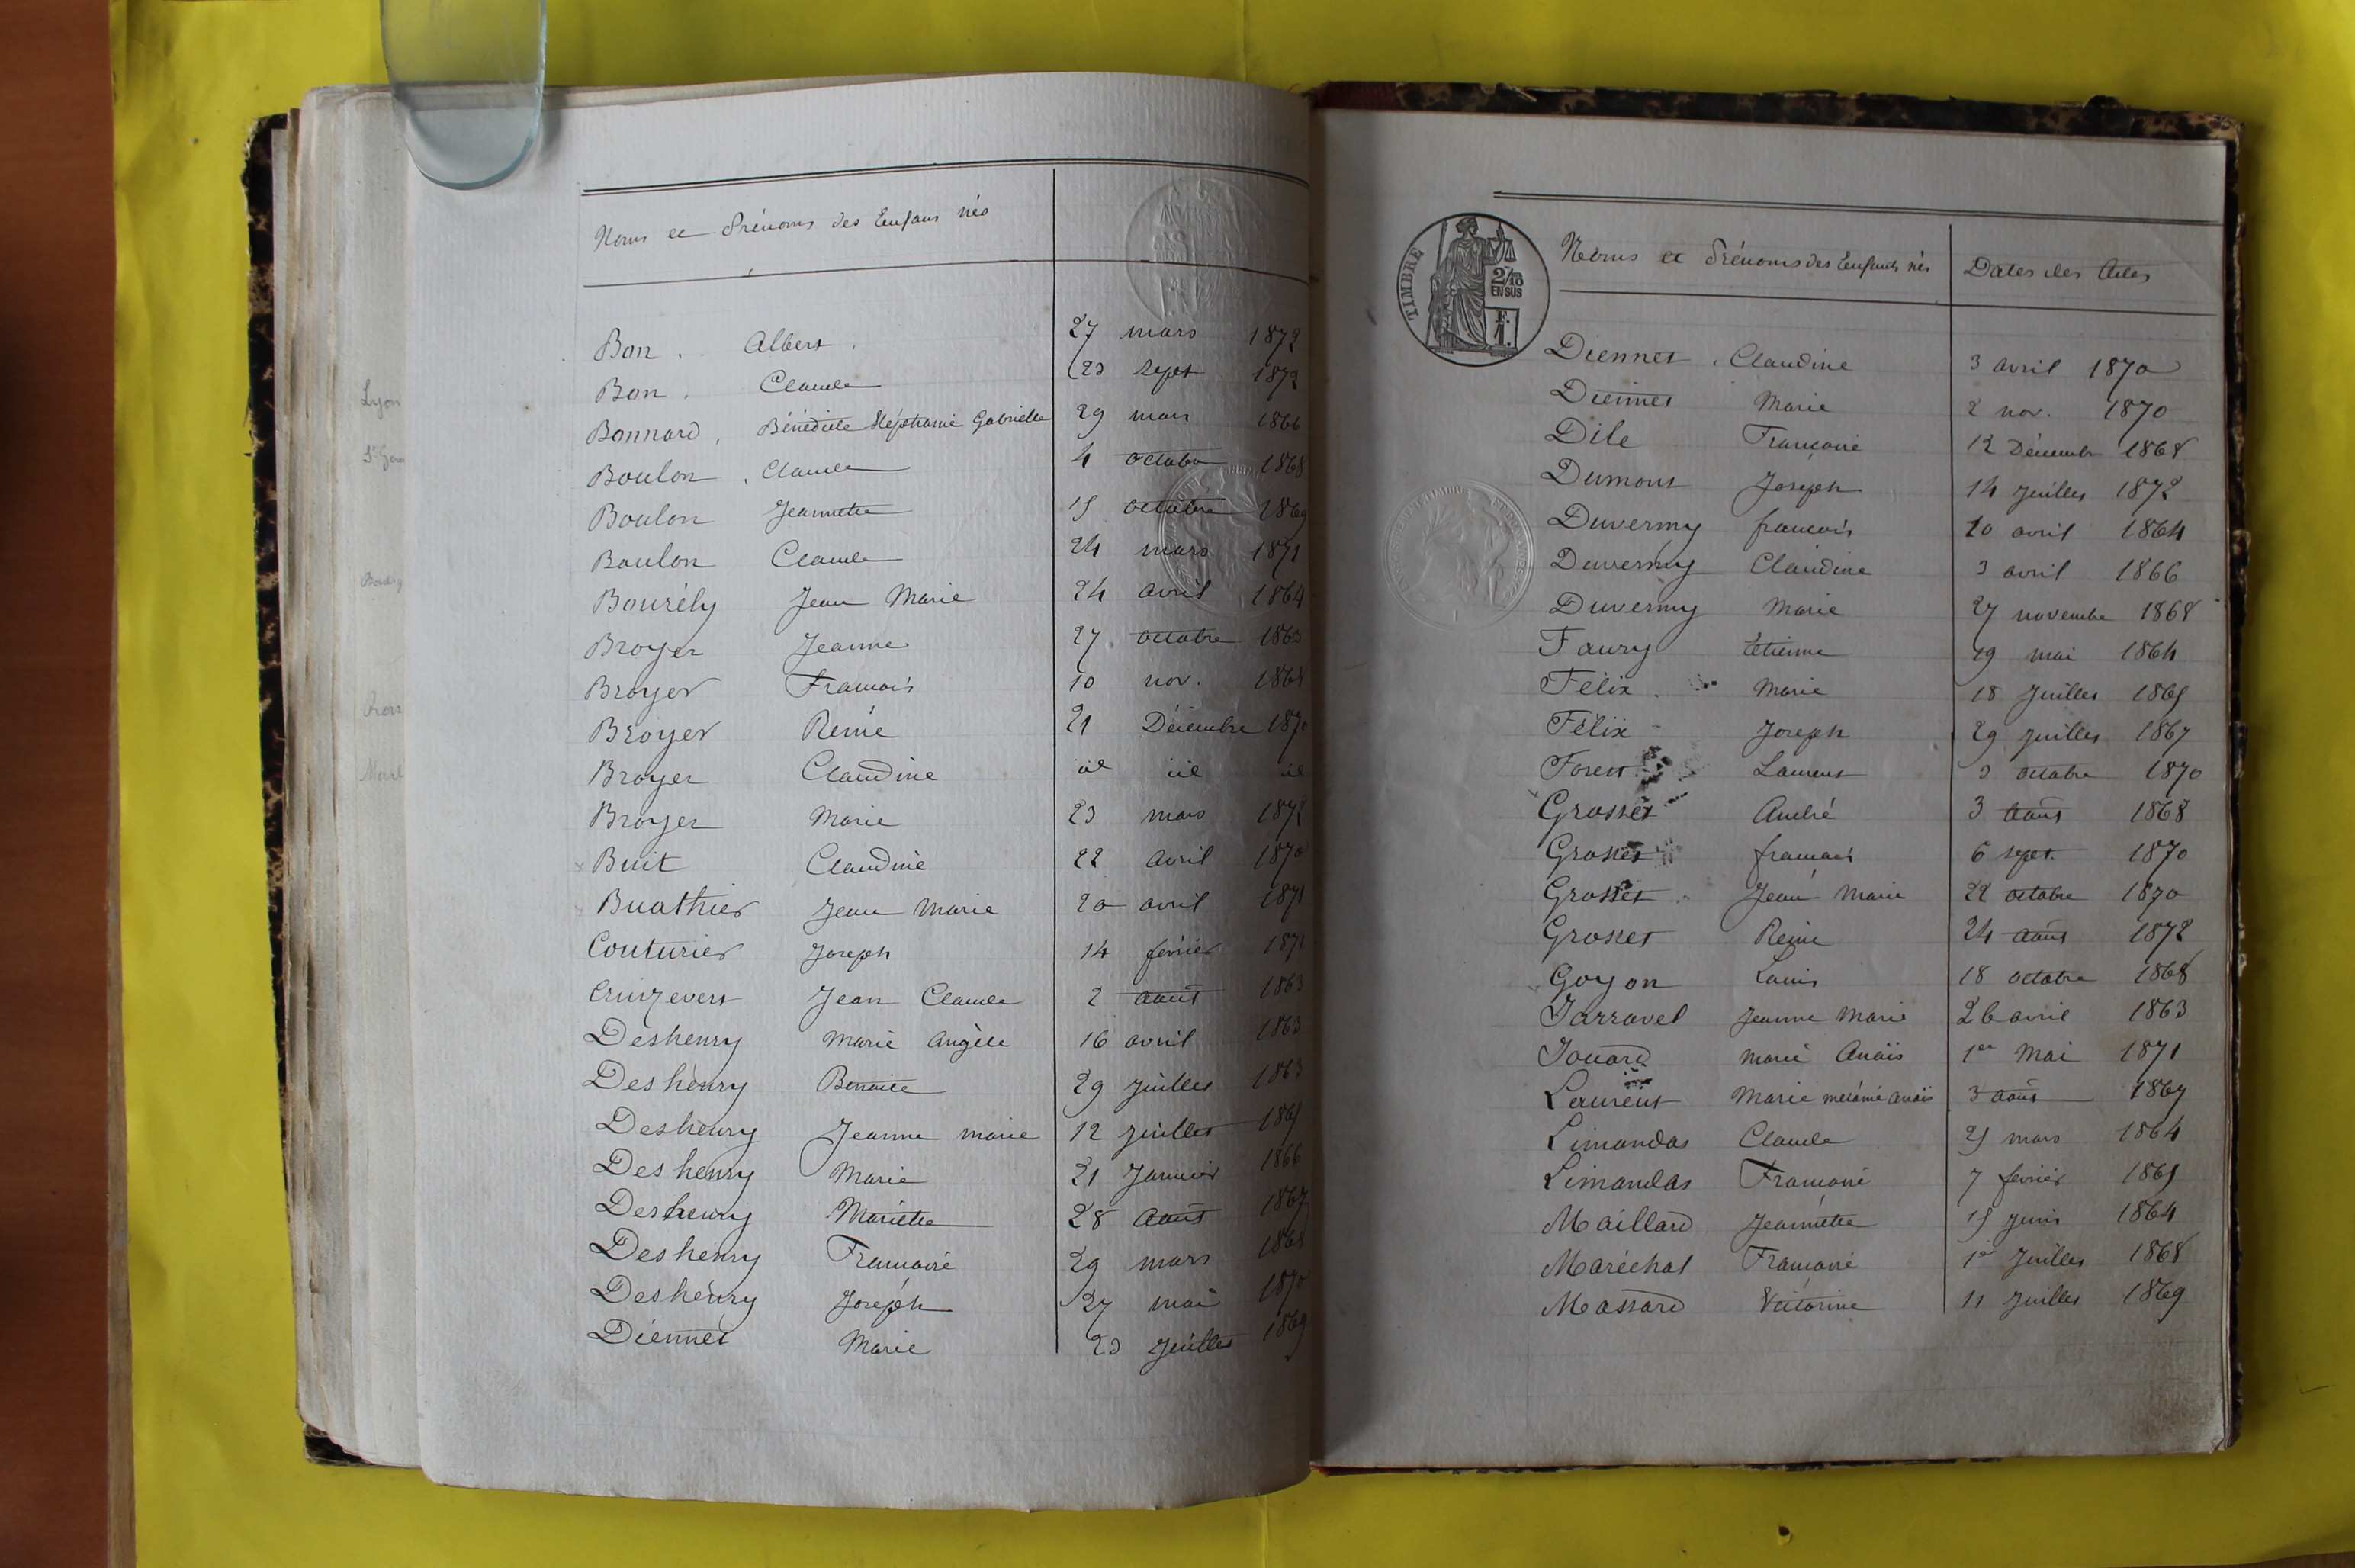 Noms et Prénoms des Enfans nés
Bon Albert 27 mars 1872
Bon Claude 23 sept 1872
Bonnard Bénédicte Stéphanie Gabrielle 29 mars 1866
Boulon Claude 4 octobre 1868
Boulon Jeannette 15 octobre 1869
Boulon Claude 24 mars 1871
Bourély Jean Marie 24 avril 1864
Broyer Jeanne 27 octobre 1863
Broyer François 10 nov. 1868
Broyer Reine 21 Décembre 1870
Broyer Claudine id id id
Broyer Marie 23 mars 1872
Buit Claudine 22 avril 1870
Buathier Jean Marie 20 avril 1871
Couturier Joseph 14 février 1871
Cruizevert Jean Claude 2 août 1863
Deshenry Marie Angèle 16 avril 1863
Deshenry Benoite 29 juillet 1863
Deshenry Jeanne marie 12 juillet 1865
Deshenry Marie 21 Janvier 1866
Deshenry Mariette 28 Août 1867
Deshenry Françoise 29 mars 1868
Deshenry Joseph 27 mai 1870
Diennet Marie 23 juillet 1869
TIMBRE
2/10
EN SUS
F.
1.
Noms et Prénoms des Enfants nés Dates des Actes
Diennet Claudine 3 avril 1870
Diennet Marie 2 nov. 1870
Dile Françoise 12 Décembre 1868
Dumont Joseph 14 juillet 1872
Duverny françois 20 avril 1864
Duverny Claudine 3 avril 1866
Duverny Marie 27 novembre 1868
Faury Etienne 19 mai 1864
Félix Marie 18 juillet 1865
Félix Joseph 29 juillet 1867
Forest Laurent 3 octobre 1870
Grosset André 3 août 1868
Grosset françois 6 sept. 1870
Grosset Jean Marie 22 octobre 1870
Grosset Reine 24 août 1872
Goyon Louis 18 octobre 1868
Jarravel Jeanne Marie 26 avril 1863
Jouard marie Anaïs 1er Mai 1871
Laurent Marie mélanie anaïs 3 août 1867
Limandas Claude 25 mars 1864
Limandas Françoise 7 février 1865
Maillard Jeannette 15 juin 1864
Maréchal Françoise 1er Juillet 1868
Massard Victorine 11 Juillet 1869
Lyon